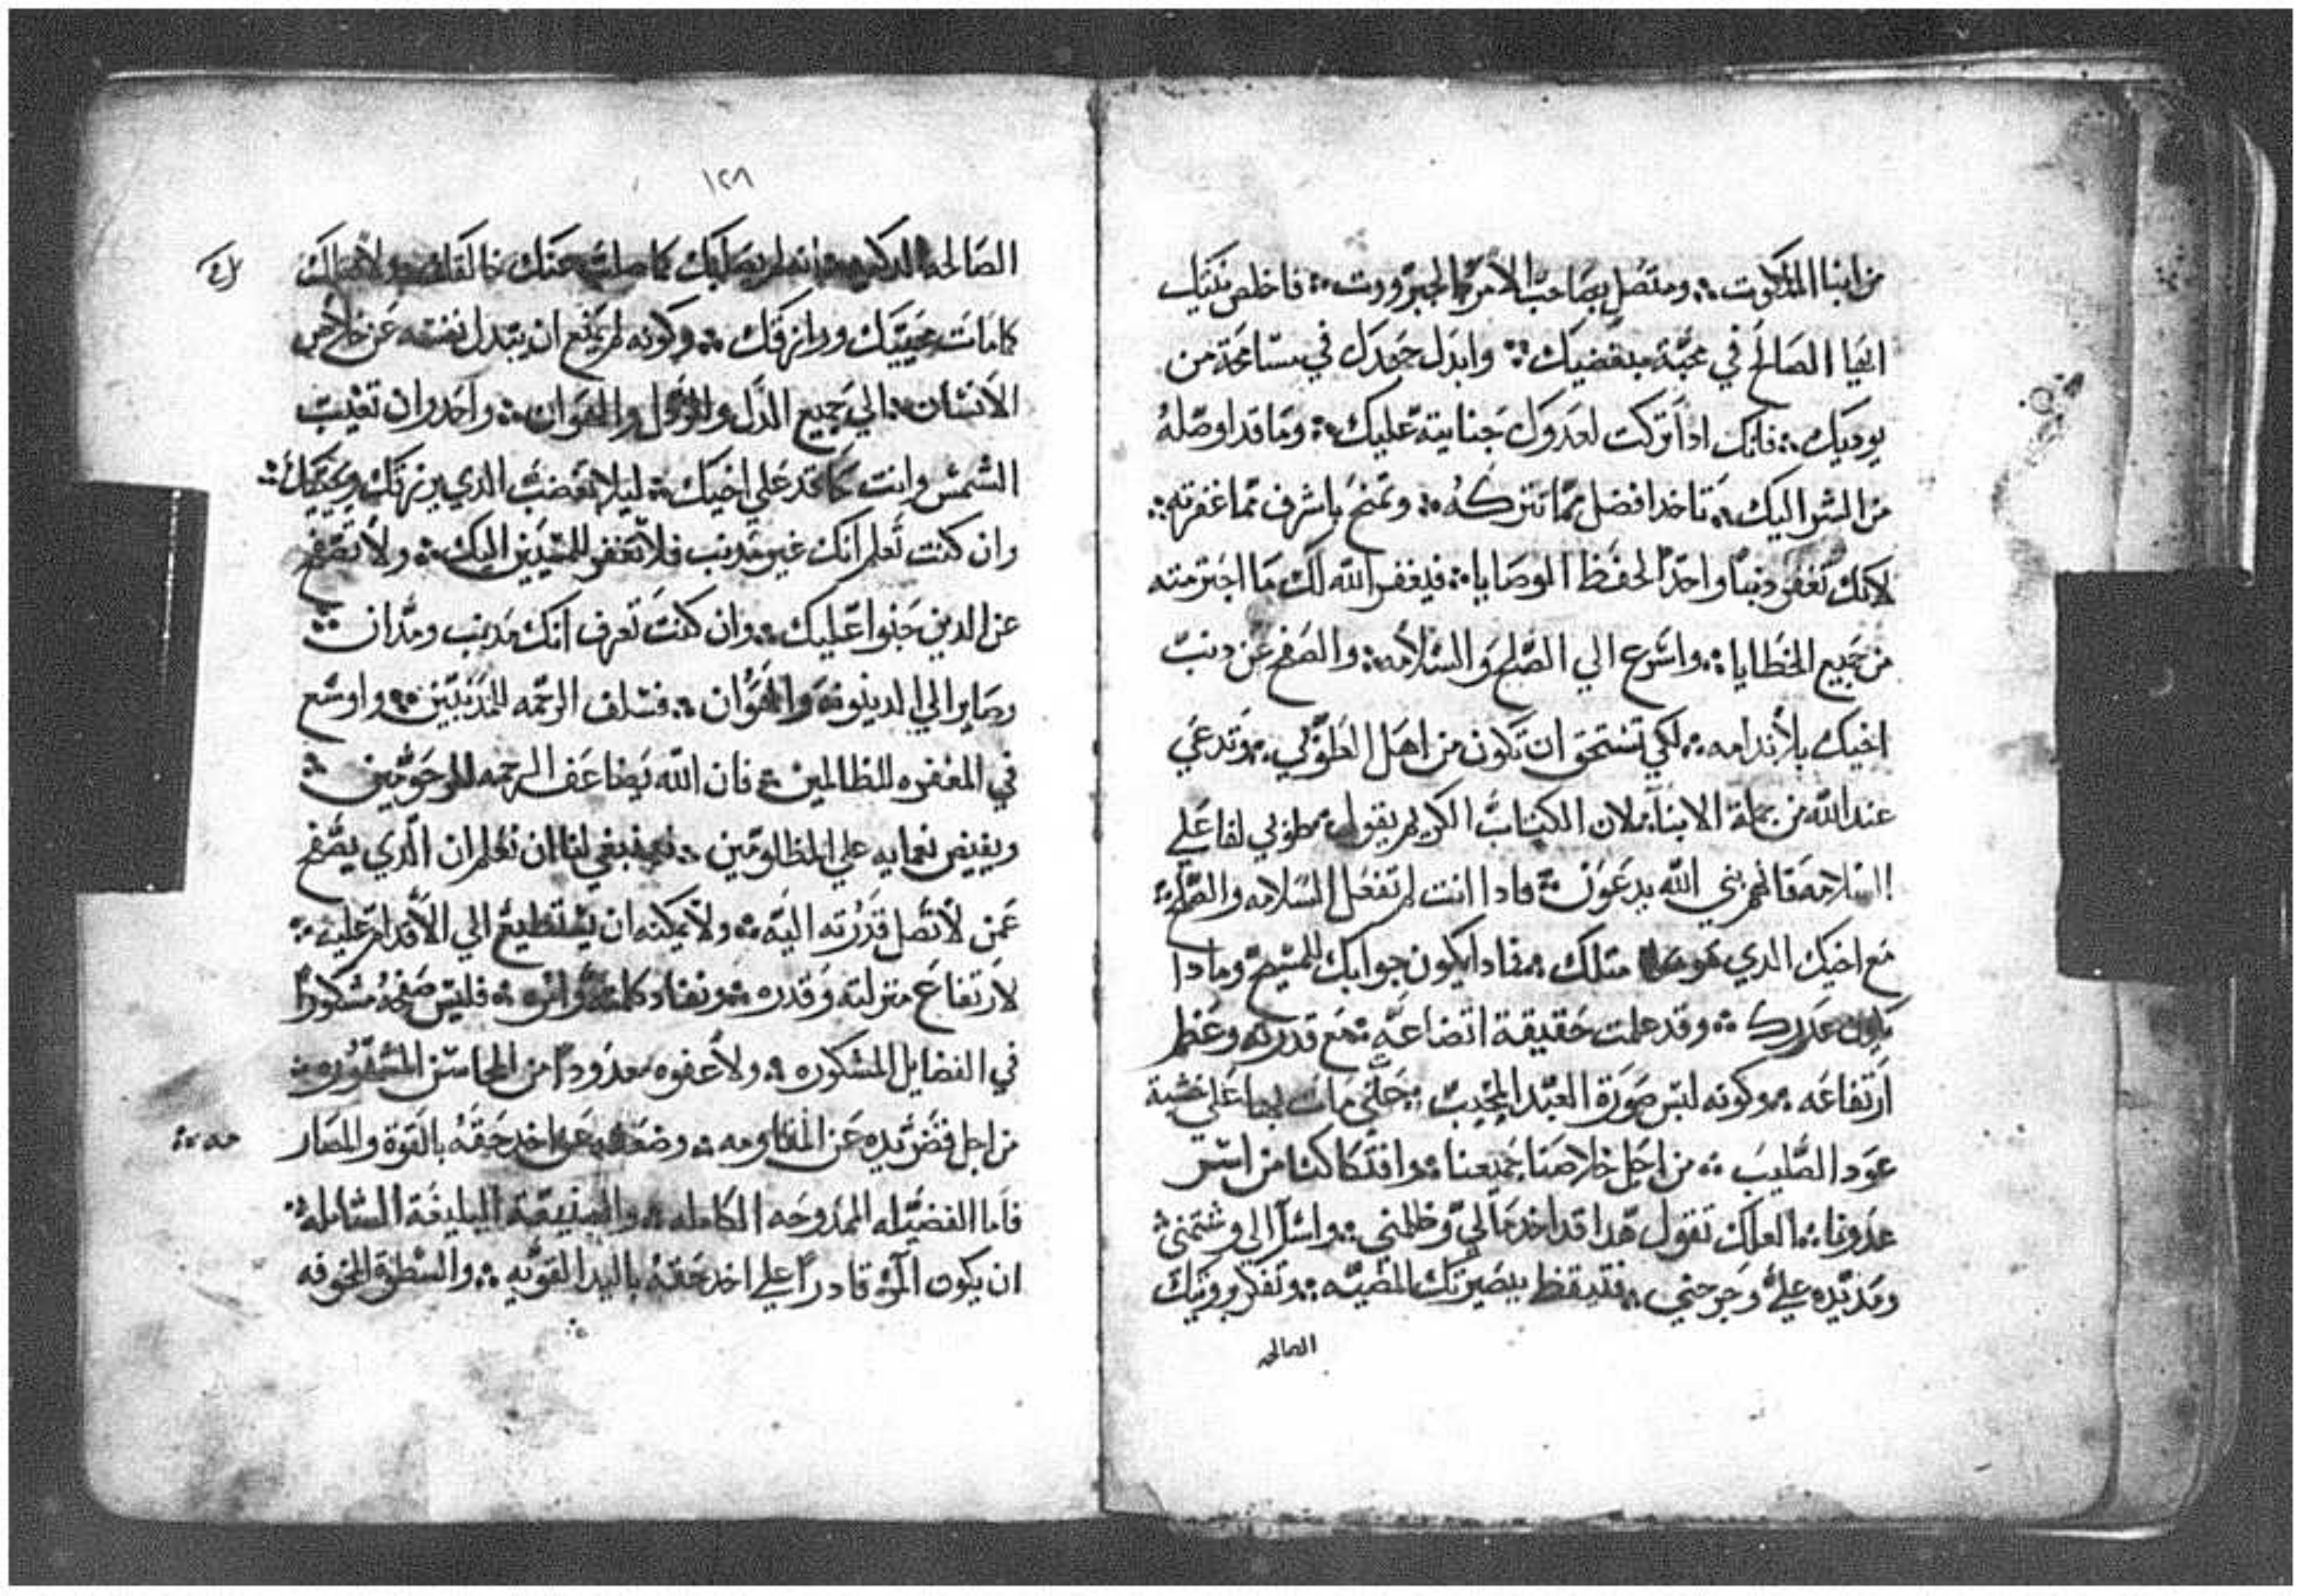 من ابنا الملكوت ومتصل بصاحب الامر والجبروت فاخلص نيتك
ايها الصالح في محبة مبغضيك وابدل جهدك في مسامحة من
يوديك فانك ادا تركت لعدوك جنايته عليك وما قد اوصله
من الشر اليك تاخد افضل مما تتركه وتمنح باشرف مما غفرته
لانك تغفر دنبا واحدا لحفظ الوصايا فيغفر الله لك ما اجترمته
من جميع الخطايا واسرع الي الصلح والسلامه والصفح عن دنب
اخيك بلا ندامه لكي تستحق ان تكون من اهل الطوبي وتدعي
عند الله من جملة الابنا لان الكتاب الكريم يقول طوبي لفاعلي
السلامه فانهم بني الله يدعون فادا انت لم تفعل السلامه والصلح
مع اخيك الدي هو مثلك فمادا يكون جوابك للمسيح ومادا
يكون عدرك وقد علمت حقيقة اتضاعه مع قدرته وعظم
ارتفاعه وكونه لبس صورة العبد المجيب حتي مات بها علي خشبة
عود الصليب من اجل خلاصنا جميعنا وافتكاكنا من اسر
عدونا العلك تقول هدا قد اخد مالي وظلمني واسآ الي وشتمني
ومد يده علي وجرحني فتيقظ ببصيرتك المضيه وتفكر برويتك
الصالحه
١٢٨
الصالحه الدكيه انه لم يصل اليك كما صلب عنك خالقك ولا امالك
كما مات محييك ورازقك وكونه لم يمنع ان يبدل نفسه عن خلاص
الانسان الي جميع الدل والهوان واحدر ان تغيب
الشمس وانت حاقد علي اخيك ليلا تغضب الدي يرزقك ويحييك
وان كنت تعلم انك غير مدنب فلا تغفر للمسيين اليك ولا تصفح
عن الدين جنوا عليك وان كنت تعرف انك مدنب ومدان
وصاير الي الدينونه والهوان فسلف الرحمه للمدنبين واوسع
في المغفره للظالمين فان الله يضاعف الرحمه للمرحومين
ويفيض نعمايه علي المظلومين ينبغي لنا ان نعلم ان الدي يصفح
عمن لا تصل قدرته اليه ولا يمكنه ان يستطيع الي الاقدام عليه
لارتفاع منزلته وقدره ونفاد كلمته وامره فليس صفحه مشكورا
في الفضايل المشكوره ولا عفوه معدودا من المحاسن
من اجل قصر يده عن المقاومه وضعفه عن اخد حقه بالقوة والمصار
مه
فاما الفضيله الممدوحه الكامله البليغة الشامله
ان يكون المرؤ قادرا علي اخد حقه باليد القويه والسطوة المخوفه